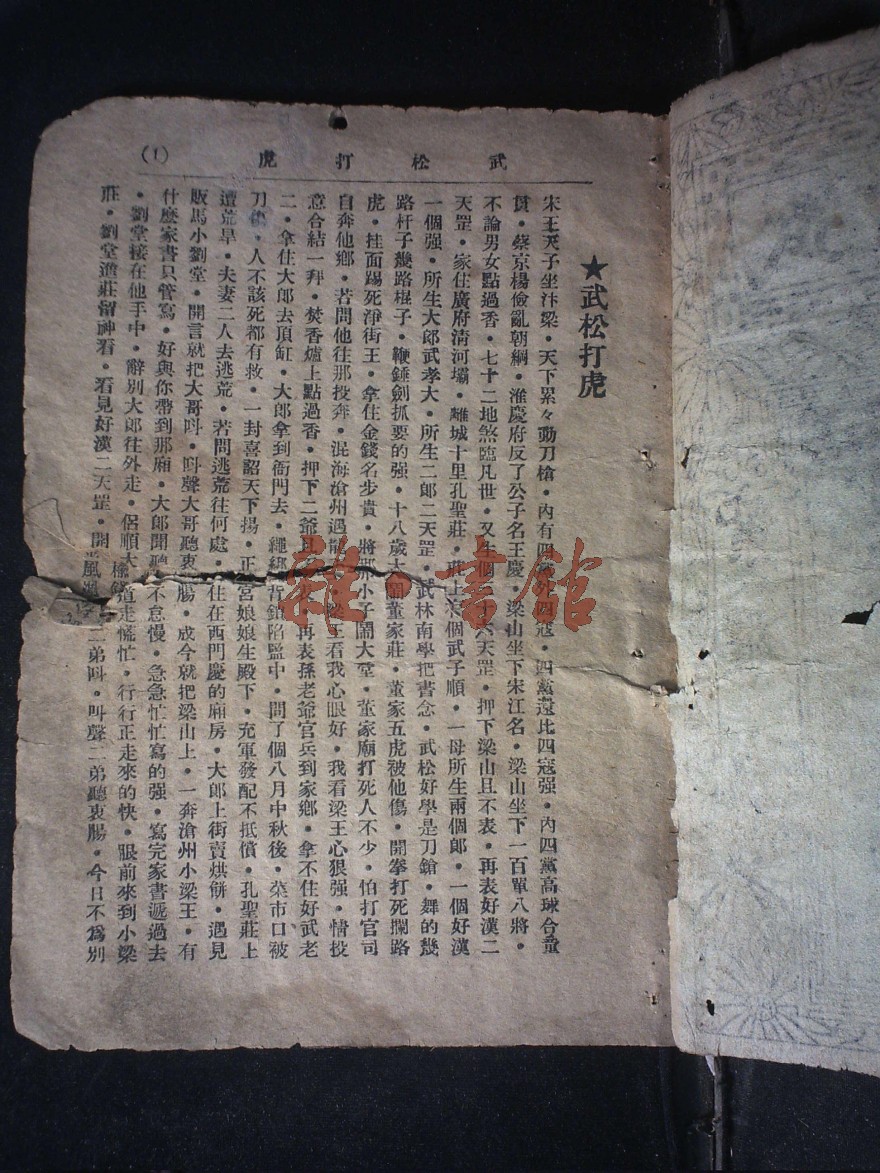 武松打虎
（1）
★武松打虎
宋王天子坐汴梁・天下累々動刀槍・內有四黨外四寇・四黨還比四寇强・內四黨高球合童
貫・蔡京楊儉亂朝綱・淮慶府反了公子名王慶・梁山坐下宋江名・梁山坐下一百單八將・
不論男女點過香・七十二地煞臨凡世・又生個三十六天罡・押下梁山且不表・再表好漢二
天罡・家住廣府淸河壩・離城十里孔聖莊・莊上有個武子順・一母所生兩個郎・一個好漢
一個强・所生大郎武孝大・所生二郎二天罡・武林南學把書念・武松好學是刀鎗・舞的幾
路杆子幾路棍子・鞭錘劍抓要的强・十八歲大鬧董家莊・董家五虎被他傷・開拳打死攔路
虎・挂面踢死淨街王・拿住金錢名步貴・將那小子鬧大堂・董家廟打死人不少・怕打官司
自奔他鄉・若問他往那投奔・混海滄州遇 梁王看我心眼好・我看梁王心狠强・情投
意合結一拜・焚香爐上點過香・押下二爺 再表孫老爺官兵到家鄉・拿不住好武老
二・拿住大郎去頂缸・大郎拿到衙門去・繩綁背鎖陷監中・問了個八月中秋後・菜市口被
刀傷・人不該死都有救・一封喜韶天下揚・正宮娘娘生殿下・充軍發配不抵償・孔聖莊上
遭荒旱・夫妻二人去逃荒・若問逃荒往何處・住在西門慶的廂房・大郎上街賣烘餅・遇見
販馬小劉堂・開言就把大哥呌・呌聲大哥聽衷腸・放今就把梁山上・一奔滄州小梁王・有
什麼家書只管寫・好與你帶到那廂・大郎聞聽不怠慢・急急忙忙寫的强・寫完家書遞過去
・劉堂接在他手中・辭別大郎往外走・侶順大道走慌忙・行行正走來的快・眼前來到小梁
莊・劉堂進莊留神看・看見好漢二天罡・開 二弟呌・呌聲二弟聽衷腸・今日不爲別
雜・書館